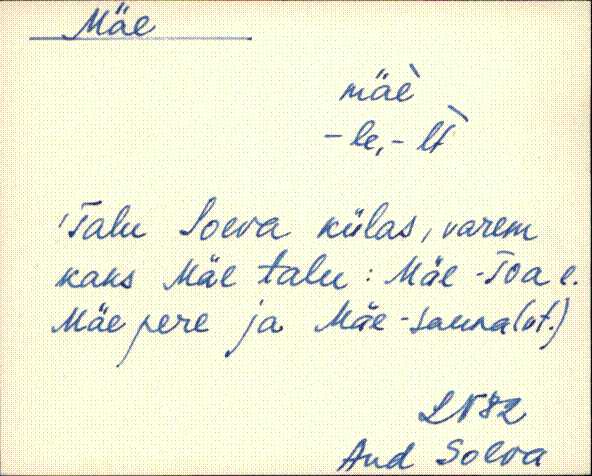 Mäe
mäè
-le, -lt̀
Talu Soeva külas, varem
kaks Mäe talu: Mäe-Toa e.
Mäepere ja Mäe-sauna (vt.)
LN82
Aud Soeva